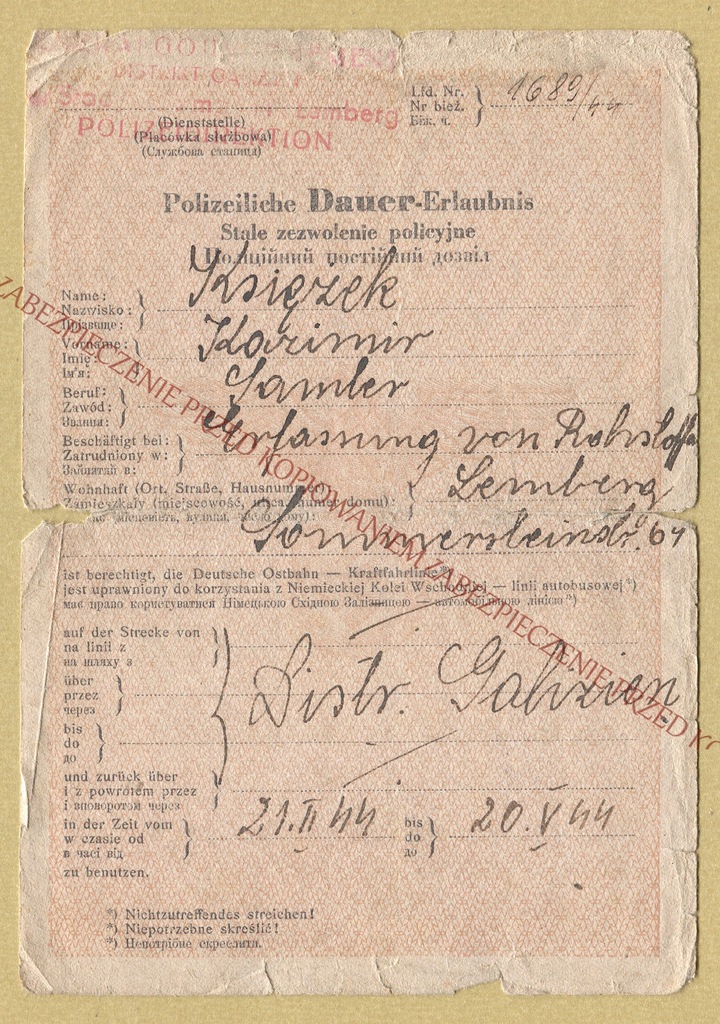 DISTRIKT GALIZIEN
Lemberg
POLIZEIDIREKTION
(Dienststelle)
(Placówka służbowa)
(Службова станиця)
Lfd. Nr.
Nr bież.
Біж. ч.
1689/44
Polizeiliche Dauer-Erlaubnis
Stałe zezwolenie policyjne
Поліційний постійний дозвіл
Name:
Nazwisko:
Прізвище:
Książek
Vorname:
Imię:
Ім'я:
Kazimir
Beruf:
Zawód:
Звання:
Samler
Beschäftigt bei:
Zatrudniony w:
Зайнятий в:
Erfassung von Rohstoffen
Wohnhaft (Ort, Straße, Hausnummer):
Zamieszkały (miejscowość, ulica, numer domu):
(місцевість, вулиця, число дому):
Lemberg
Sommersteinstr. 64
ist berechtigt, die Deutsche Ostbahn — Kraftfahrlinie *)
jest uprawniony do korzystania z Niemieckiej Kolei Wschodniej — linii autobusowej *)
має право користуватися Німецькою Східною Залізницею — автомобільною лінією *)
auf der Strecke von
na linii z
на шляху з
über
przez
через
bis
do
до
Distr. Galizien
und zurück über
i z powrotem przez
і зповоротом через
in der Zeit vom
w czasie od
в часі від
21.II 44
bis
do
до
20.V 44
zu benutzen.
*) Nichtzutreffendes streichen!
*) Niepotrzebne skreślić!
*) Непотрібне скреслити.
ZABEZPIECZENIE PRZED KOPIOWANIEM ZABEZPIECZENIE PRZED